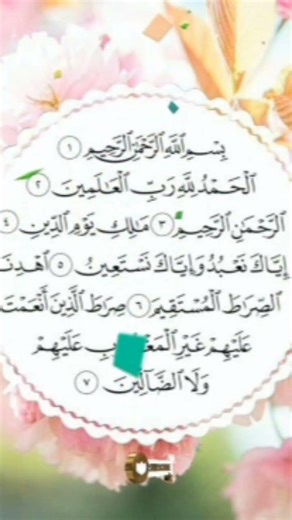 بِسْمِ اللَّهِ الرَّحْمَٰنِ الرَّحِيمِ ١
الْحَمْدُ لِلَّهِ رَبِّ الْعَالَمِينَ ٢
الرَّحْمَٰنِ الرَّحِيمِ ٣ مَالِكِ يَوْمِ الدِّينِ ٤
إِيَّاكَ نَعْبُدُ وَإِيَّاكَ نَسْتَعِينُ ٥ اهْدِنَ
الصِّرَاطَ الْمُسْتَقِيمَ ٦ صِرَاطَ الَّذِينَ أَنْعَمْتَ
عَلَيْهِمْ غَيْرِ عَلَيْهِمْ
وَلَا الضَّالِّينَ ٧